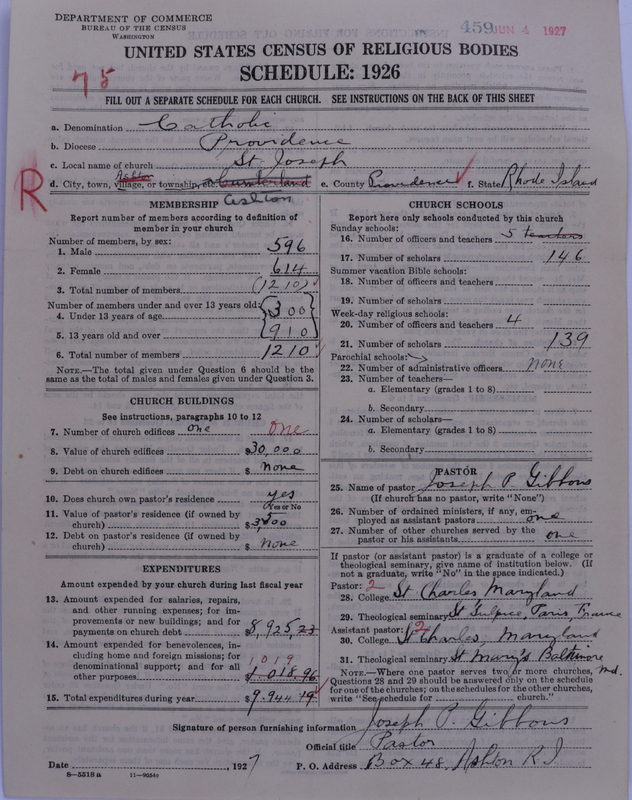 DEPARTMENT OF COMMERCE
BUREAU OF THE CENSUS
WASHINGTON
459 JUN 4 1927
UNITED STATES CENSUS OF RELIGIOUS BODIES
SCHEDULE: 1926
75
FILL OUT A SEPARATE SCHEDULE FOR EACH CHURCH. SEE INSTRUCTIONS ON THE BACK OF THIS SHEET
a. Denomination Catholic
b. Diocese Providence
c. Local name of church St Joseph
R
d. City, town, village, or township, etc. Ashton Cumberland Ashton e. County Providence f. State Rhode Island
MEMBERSHIP
Report number of members according to definition of
member in your church
Number of members, by sex:
1. Male 596
2. Female 614
3. Total number of members (1210)
Number of members under and over 13 years old:
4. Under 13 years of age 300
5. 13 years old and over 910
6. Total number of members 1210
NOTE.—The total given under Question 6 should be
the same as the total of males and females given under Question 3.
CHURCH BUILDINGS
See instructions, paragraphs 10 to 12
7. Number of church edifices one One
8. Value of church edifices $30,000
9. Debt on church edifices $ None
10. Does church own pastor's residence yes
Yes or No
11. Value of pastor's residence (if owned by
church) $3500
12. Debt on pastor's residence (if owned by
church) $ None
EXPENDITURES
Amount expended by your church during last fiscal year
13. Amount expended for salaries, repairs,
and other running expenses; for im-
provements or new buildings; and for
payments on church debt $8,925.23
14. Amount expended for benevolences, in-
cluding home and foreign missions; for
denominational support; and for all
other purposes 1019 $1,018.96
15. Total expenditures during year $9.944.19
CHURCH SCHOOLS
Report here only schools conducted by this church
Sunday schools:
16. Number of officers and teachers 5 teachers
17. Number of scholars 146
Summer vacation Bible schools:
18. Number of officers and teachers
19. Number of scholars
Week-day religious schools:
20. Number of officers and teachers 4
21. Number of scholars 139
Parochial schools:
22. Number of administrative officers none
23. Number of teachers—
a. Elementary (grades 1 to 8)
b. Secondary
24. Number of scholars—
a. Elementary (grades 1 to 8)
b. Secondary
PASTOR
25. Name of pastor Joseph P Gibbons
(If church has no pastor, write "None")
26. Number of ordained ministers, if any, em-
ployed as assistant pastors one
27. Number of other churches served by the
pastor or his assistants one
If pastor (or assistant pastor) is a graduate of a college or
theological seminary, give name of institution below. (If
not a graduate, write "No" in the space indicated.)
Pastor: 2
28. College St Charles Maryland
29. Theological seminary St Sulpice, Paris, France
Assistant pastor: 2
30. College St Charles, Maryland
31. Theological seminary St Mary's Baltimore Md.
NOTE.—Where one pastor serves two or more churches,
Questions 28 and 29 should be answered only on the schedule
for one of the churches; on the schedules for the other churches,
write "See schedule for church."
Signature of person furnishing information Joseph P. Gibbons
Official title Pastor
Date , 1927 P. O. Address Box 48, Ashton R I
8—5518 a 11—9254b